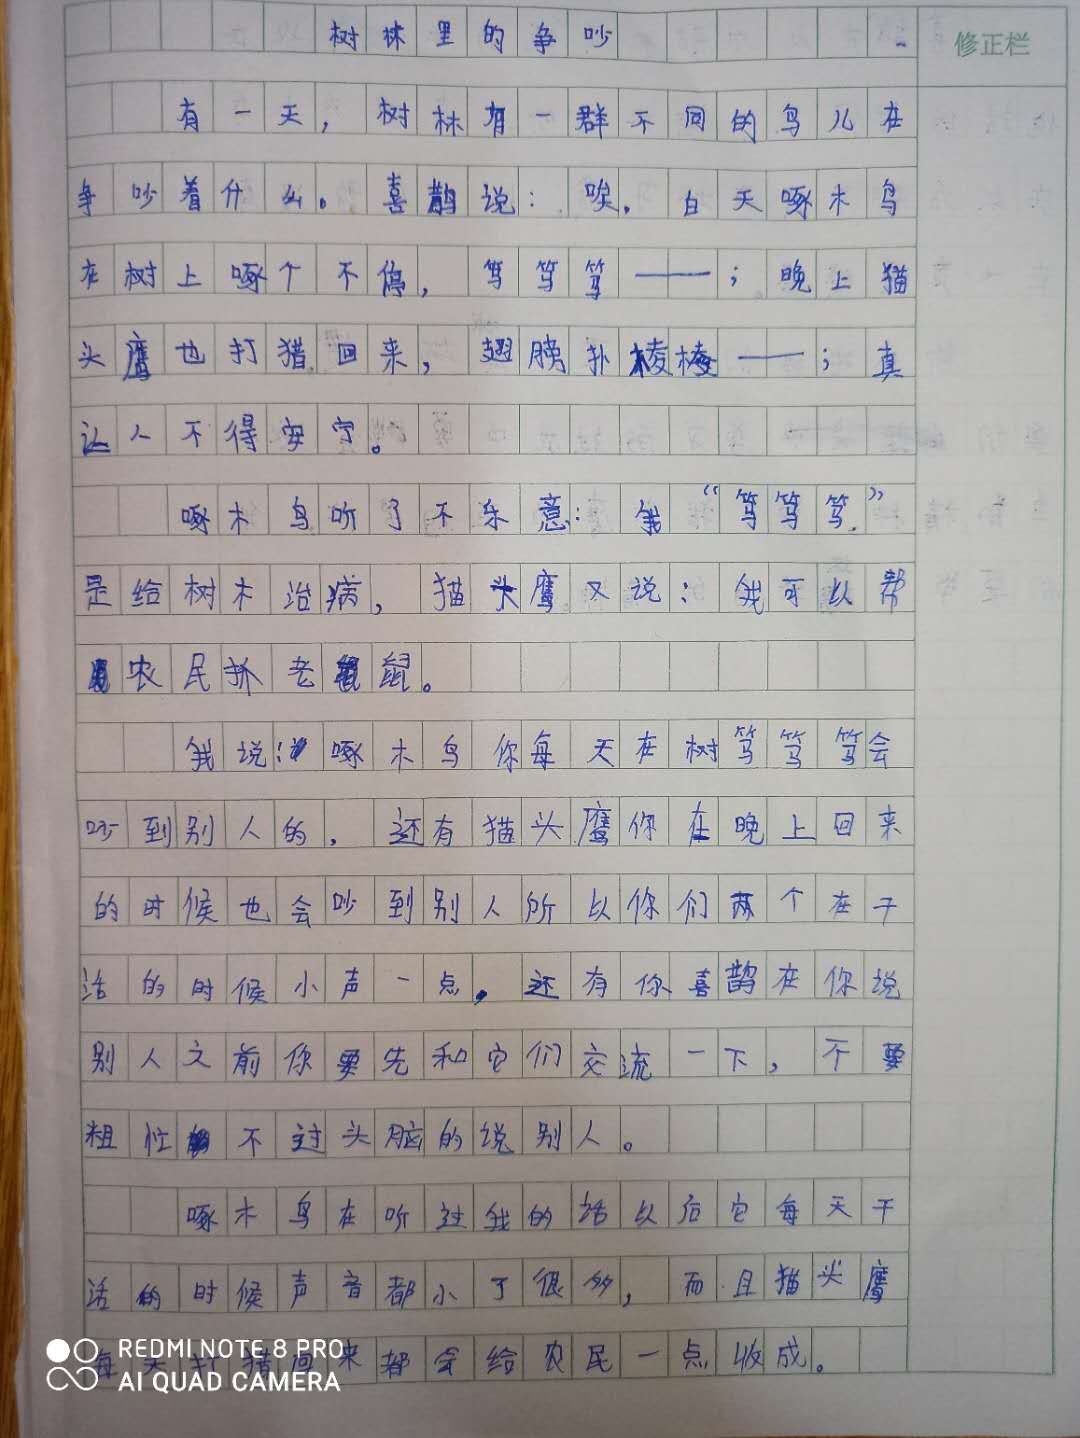 树林里的争吵
修正栏
有一天，树林有一群不同的鸟儿在
争吵着什么。喜鹊说：唉，白天啄木鸟
在树上啄个不停，笃笃笃——；晚上猫
头鹰也打猎回来，翅膀扑棱棱——；真
让人不得安宁。
啄木鸟听了不乐意：我“笃笃笃”
是给树木治病，猫头鹰又说：我可以帮
农民抓老鼠。
我说：啄木鸟你每天在树笃笃笃会
吵到别人的，还有猫头鹰你在晚上回来
的时候也会吵到别人所以你们两个在干
活的时候小声一点。还有你喜鹊在你说
别人之前你要先和它们交流一下，不要
粗忙不过头脑的说别人。
啄木鸟在听过我的话以后它每天干
活的时候声音都小了很多，而且猫头鹰
每天打猎回来都会给农民一点收成。
REDMI NOTE 8 PRO
AI QUAD CAMERA